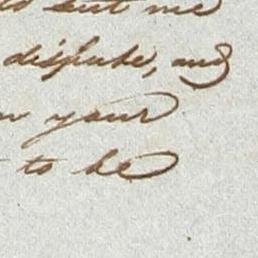 but me
dispute, and
your
to be